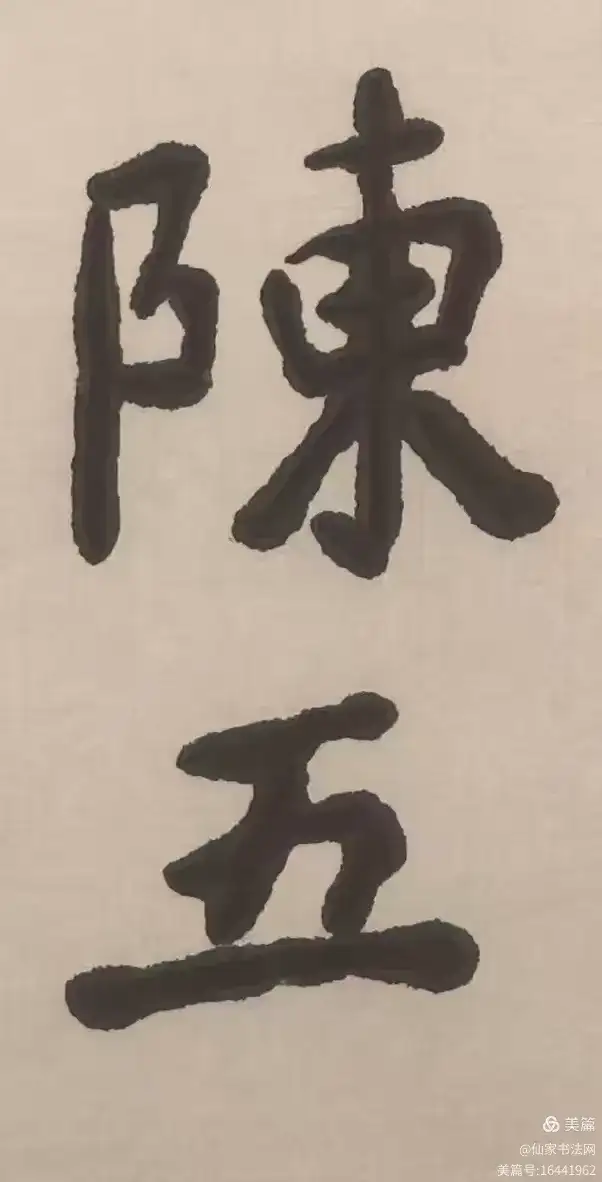 陳
五
美篇
@仙家书法网
美篇号:16441962